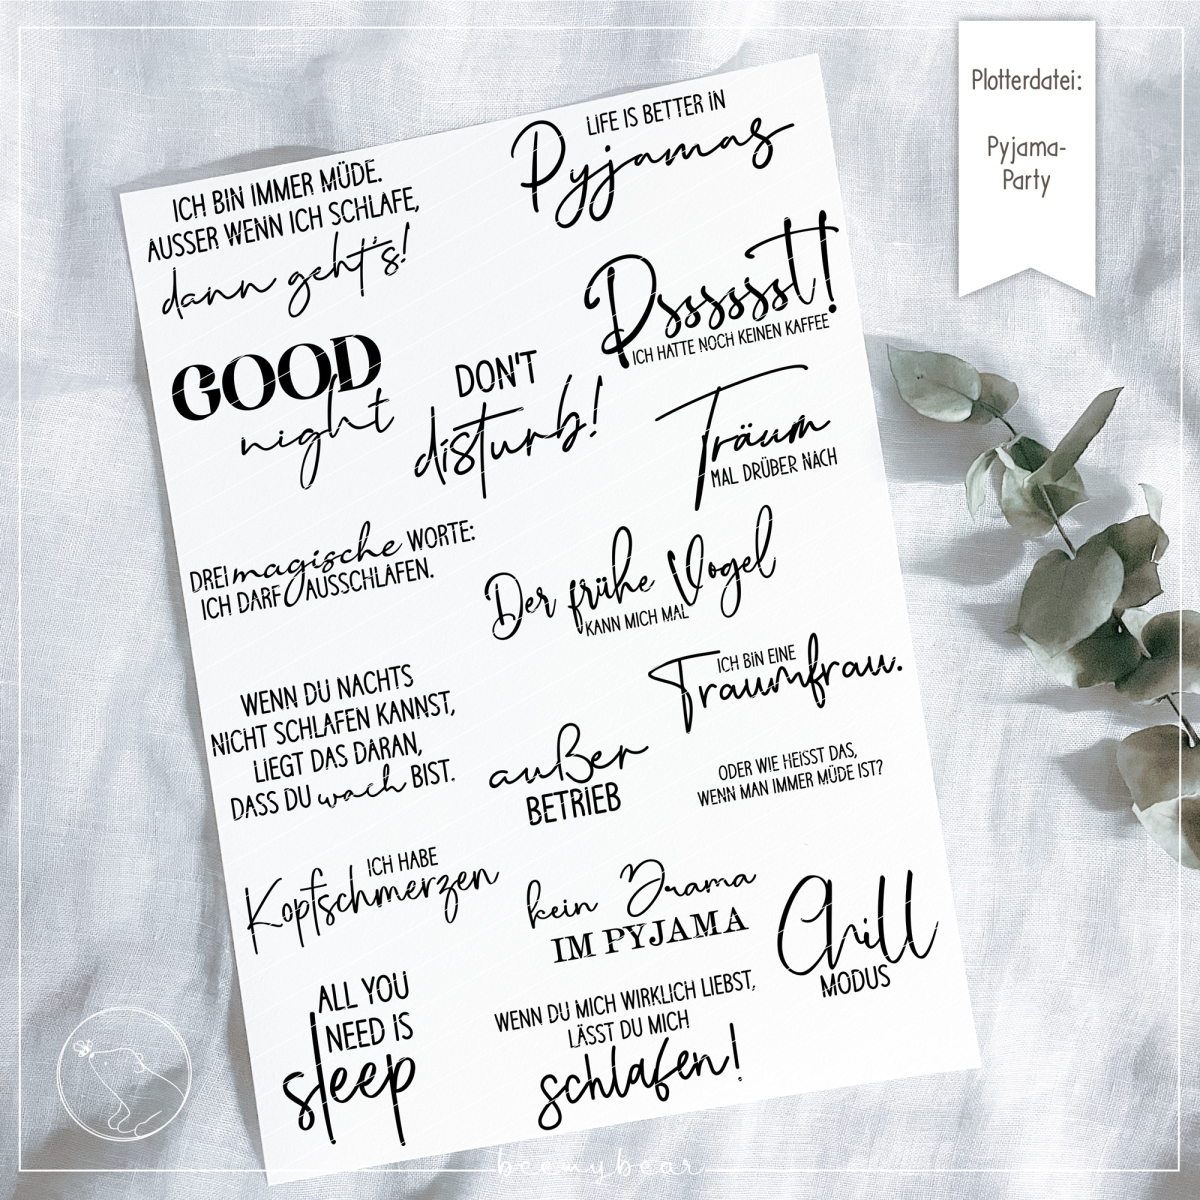 Plotterdatei:
Pyjama-
Party
LIFE IS BETTER IN
Pyjamas
ICH BIN IMMER MÜDE.
AUSSER WENN ICH SCHLAFE,
dann geht's!
Psssssst!
ICH HATTE NOCH KEINEN KAFFEE
GOOD
night
DON'T
disturb!
Träum
MAL DRÜBER NACH
DREI magische WORTE:
ICH DARF AUSSCHLAFEN.
Der frühe Vogel
KANN MICH MAL
WENN DU NACHTS
NICHT SCHLAFEN KANNST,
LIEGT DAS DARAN,
DASS DU wach BIST.
ICH BIN EINE
Traumfrau.
ODER WIE HEISST DAS,
WENN MAN IMMER MÜDE IST?
außer
BETRIEB
ICH HABE
Kopfschmerzen
kein Drama
IM PYJAMA
Chill
MODUS
ALL YOU
NEED IS
sleep
WENN DU MICH WIRKLICH LIEBST,
LÄSST DU MICH
schlafen!
beemybear